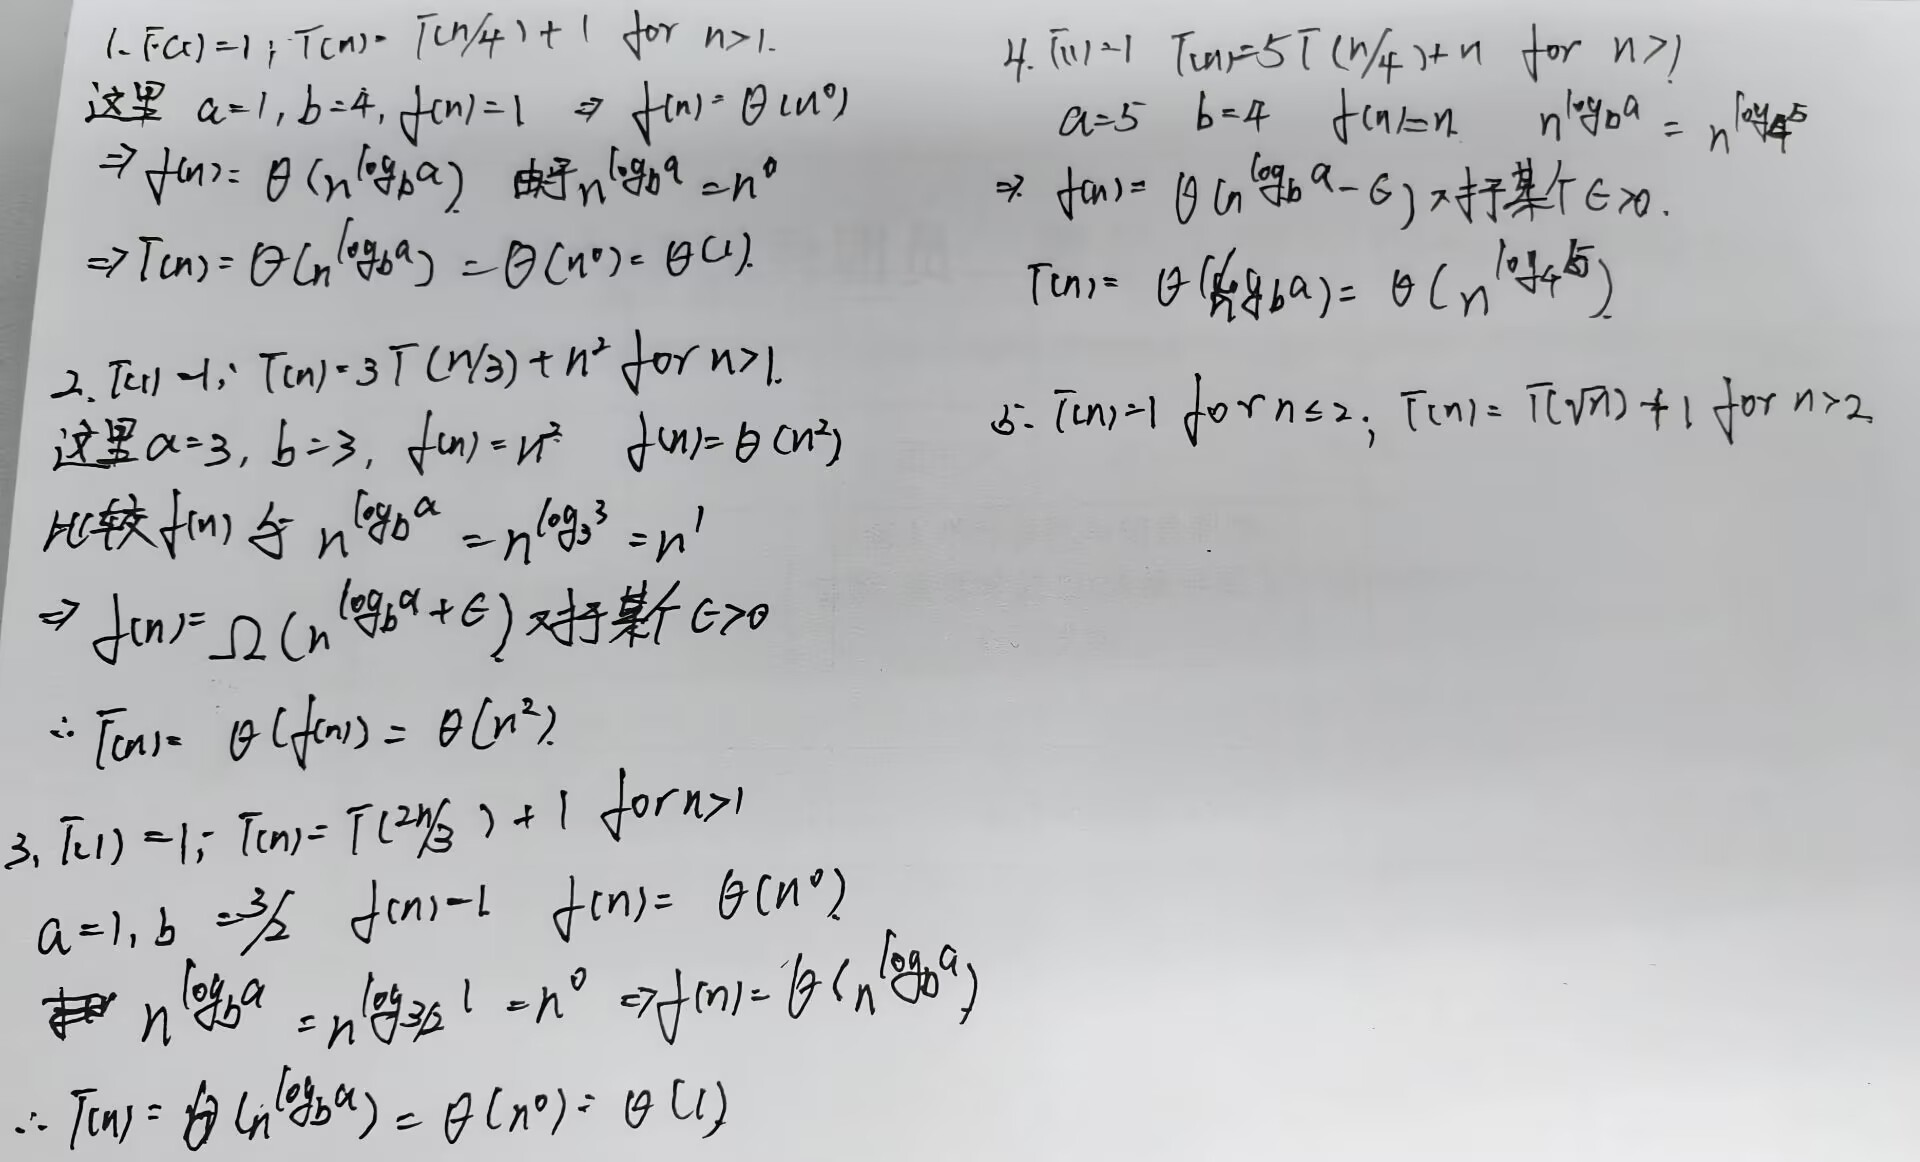 1. T(1)=1; T(n)= T(n/4)+1 for n>1.
这里 a=1, b=4, f(n)=1 ⇒ f(n)=θ(n⁰)
⇒ f(n)= θ(n^{log_b a}) 由于 n^{log_b a} = n⁰
⇒ T(n)= θ(n^{log_b a}) = θ(n⁰)= θ(1).
2. T(1)=1; T(n)=3T(n/3)+n² for n>1.
这里 a=3, b=3, f(n)=n² f(n)=θ(n²)
比较 f(n) 与 n^{log_b a} = n^{log_3 3} = n¹
⇒ f(n)= Ω(n^{log_b a+ϵ}) 对于某个 ϵ>0
∴ T(n)= θ(f(n)) = θ(n²).
3. T(1)=1; T(n)= T(2n/3)+1 for n>1
a=1, b=3/2 f(n)=1 f(n)= θ(n⁰)
n^{log_b a} = n^{log_{3/2} 1} = n⁰ ⇒ f(n)= θ(n^{log_b a})
∴ T(n)= θ(n^{log_b a}) = θ(n⁰)= θ(1)
4. T(1)=1 T(n)=5T(n/4)+n for n>1
a=5 b=4 f(n)=n n^{log_b a} = n^{log_4 5}
⇒ f(n)= θ(n^{log_b a-ϵ}) 对于某个 ϵ>0.
T(n)= θ(n^{log_b a})= θ(n^{log_4 5})
5. T(n)=1 for n≤2; T(n)= T(√n)+1 for n>2